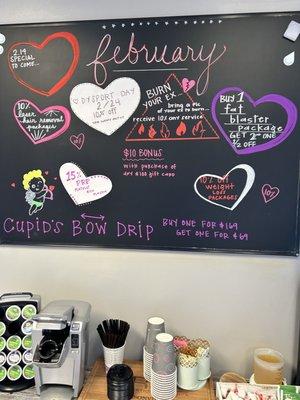 February
2.14
SPECIAL
TO COME...
DYSPORT DAY
2/24
10% OFF
BURN
YOUR EX...
bring a pic
of the ex to burn...
receive 10% any service
BUY 1
fat
blaster
package
GET 2nd ONE
1/2 OFF
10%
laser
HAIR REMOVAL
$10 BONUS
with purchase of
any $100 gift card
15%
PRE
10% OFF
WEIGHT
LOSS
PACKAGES
CUPID'S BOW DRIP
BUY ONE FOR $169
GET ONE FOR $69